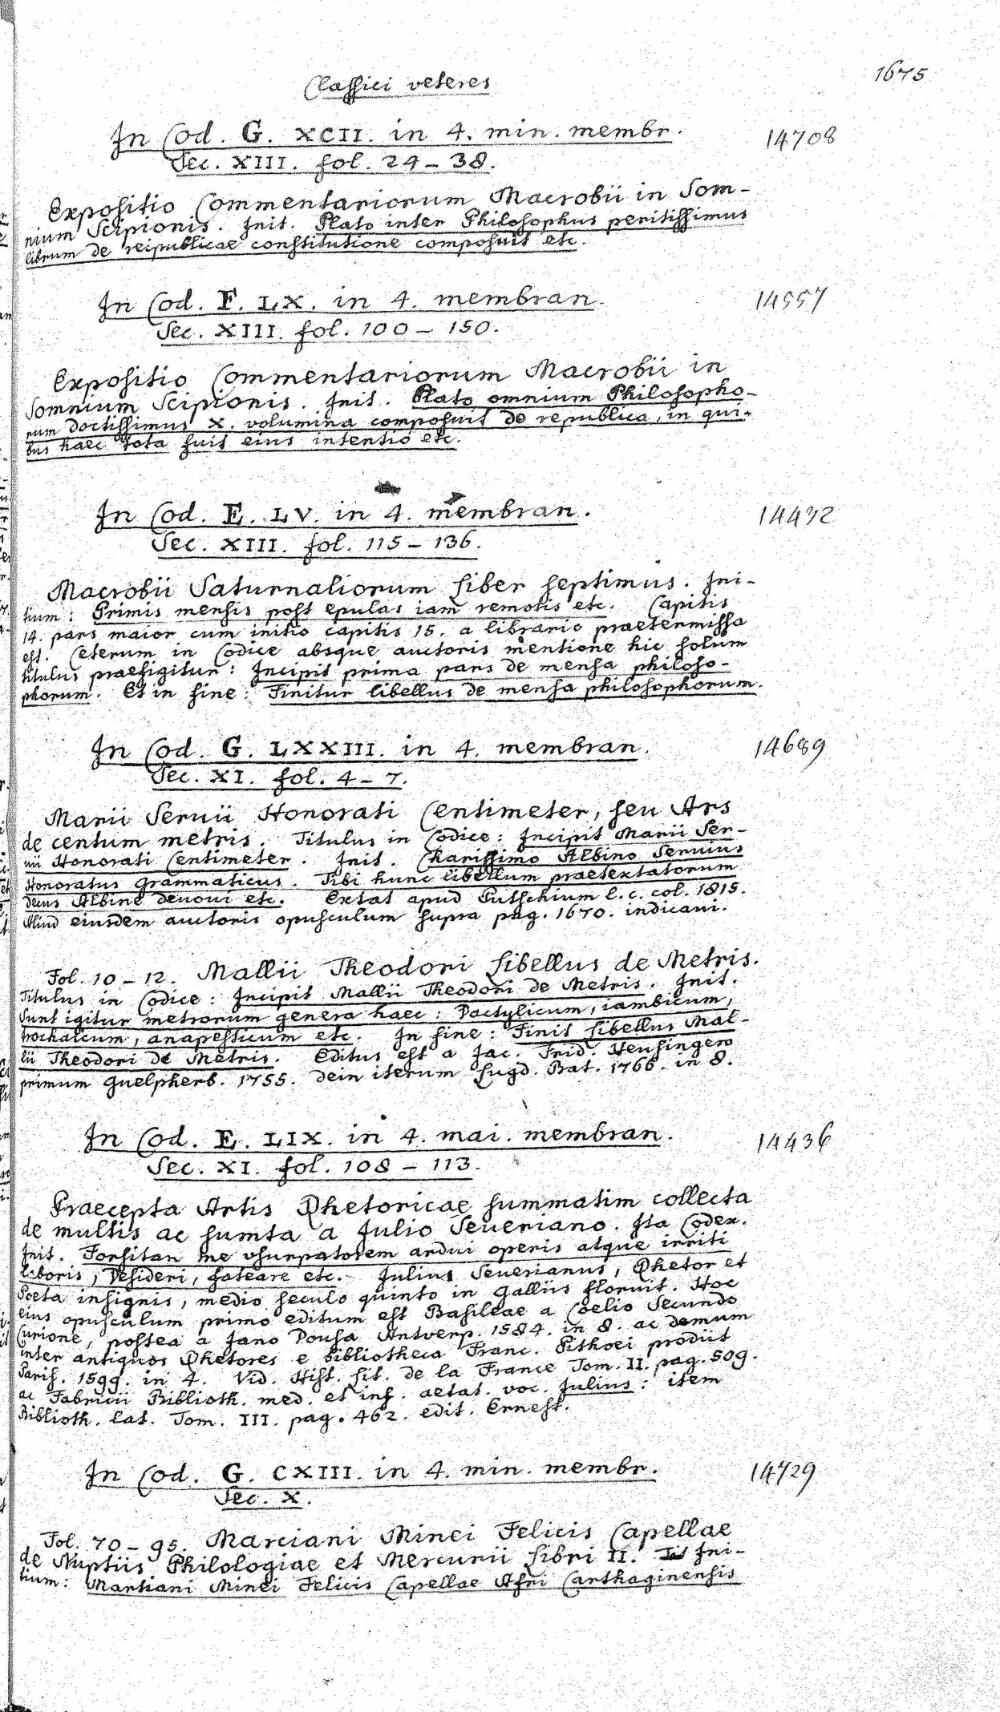 1675
Classici veteres
In Cod. G. XCII. in 4. min. membr. 14708
Sec. XIII. fol. 24 – 38.
Expositio Commentariorum Macrobii in Som-
nium Scipionis. Init. Plato inter Philosophus peritissimus
librum de reipublicae constitutione composuit etc.
In Cod. F. LX. in 4. membran. 14557
Sec. XIII. fol. 100 – 150.
Expositio Commentariorum Macrobii in
Somnium Scipionis. Init. Plato omnium Philosopho-
rum doctissimus X. volumina composuit de republica, in qui-
bus haec tota fuit eius intentio etc.
In Cod. E. LV. in 4. membran. 14432
Sec. XIII. fol. 115 – 136.
Macrobii Saturnaliorum Liber septimus. Ini-
tium: Primis mensis post epulas iam remotis etc. Capitis
14. pars maior cum initio capitis 15. a librario praetermissa
est. Ceterum in Codice absque auctoris mentione hic solum
titulus praefigitur: Incipit prima pars de mensa philoso-
phorum. Et in fine: Finitur libellus de mensa philosophorum.
In Cod. G. LXXIII. in 4. membran. 14689
Sec. XI. fol. 4 – 7.
Marii Servii Honorati Centimeter, seu Ars
de centum metris. Titulus in Codice: Incipit Marii Ser-
vii Honorati Centimeter. Init. Charissimo Albino Servius
Honoratus grammaticus. Tibi hunc libellum praetextatorum
decus Albine devovi etc. Extat apud Putschium l. c. col. 1815.
Aliud eiusdem auctoris opusculum supra pag. 1670. indicavi.
Fol. 10 – 12. Mallii Theodori Libellus de Metris.
Titulus in Codice: Incipit Mallii Theodori de Metris. Init.
Sunt igitur metrorum genera haec: Dactylicum, iambicum,
trochaicum, anapesticum etc. In fine: Finit Libellus Mal-
lii Theodori de Metris. Editus est a Jac. Frid. Heusingero
primum Guelpherb. 1755. dein iterum Lugd. Bat. 1766. in 8.
In Cod. E. LIX. in 4. mai. membran. 14436
Sec. XI. fol. 108 – 113.
Praecepta Artis Rhetoricae summatim collecta
de multis ac sumta a Julio Severiano. Ita Codex.
Init. Forsitan me vsurpatorem ardui operis atque irriti
laboris, Desideri, fateare etc. Julius Severianus, Rhetor et
Poeta insignis, medio seculo quinto in Galliis floruit. Hoc
eius opusculum primo editum est Basileae a Coelio Secundo
Curione, postea a Jano Dousa Antverp. 1584. in 8. ac demum
inter antiquos Rhetores e bibliotheca Franc. Pithoei prodiit
Paris. 1599. in 4. Vid. Hist. Lit. de la France Tom. II. pag. 509.
ac Fabricii Biblioth. med. et inf. aetat. voc. Julius: item
Biblioth. Lat. Tom. III. pag. 462. edit. Ernest.
In Cod. G. CXIII. in 4. min. membr. 14729
Sec. X.
Fol. 70 – 95. Marciani Minei Felicis Capellae
de Nuptiis Philologiae et Mercurii Libri II. Ini-
tium: Martiani Minei Felicis Capellae Afri Carthaginensis